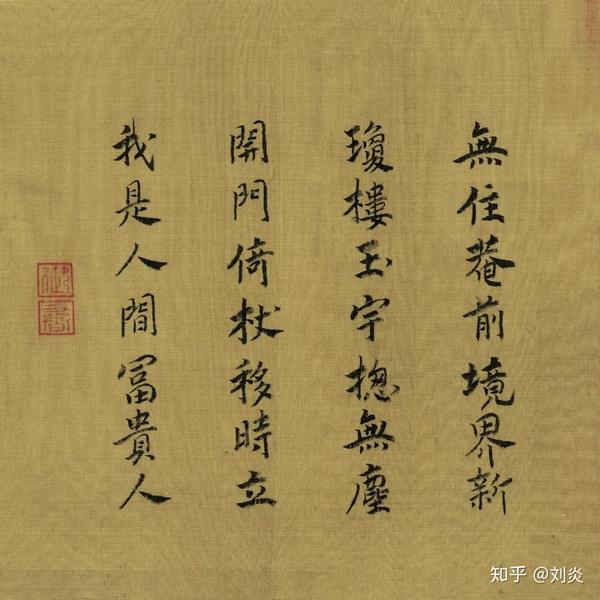 無住菴前境界新
瓊樓玉宇摠無塵
開門倚杖移時立
我是人間冨貴人
御書
知乎 @刘炎